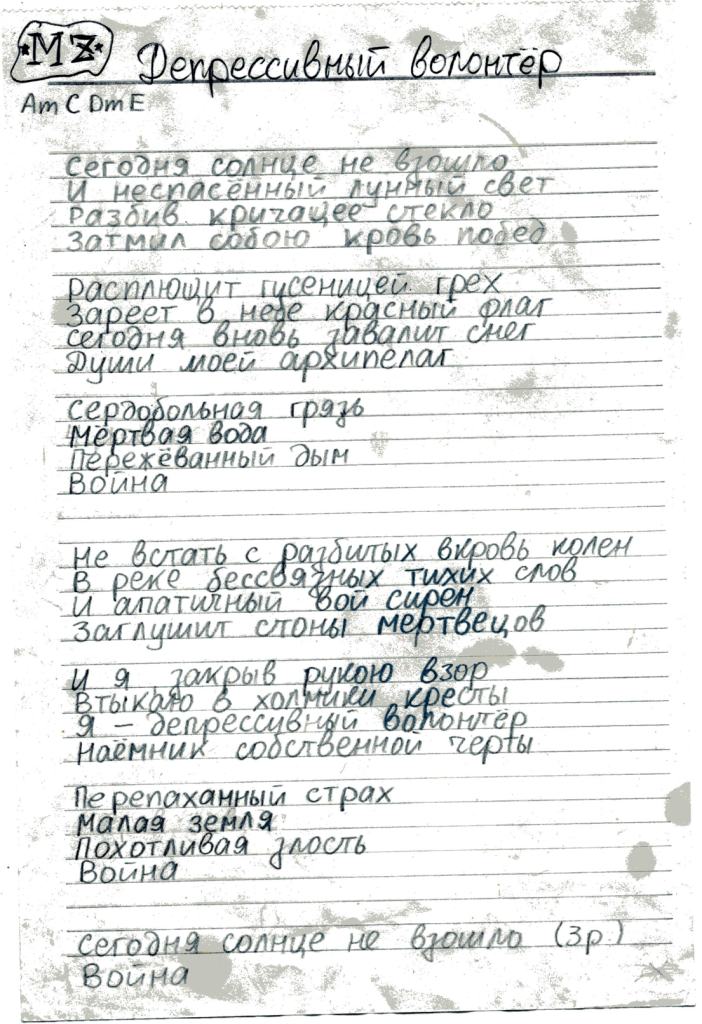 *MZ*
Депрессивный волонтёр
Am C Dm E
Сегодня солнце не взошло
И неспасённый лунный свет
Разбив кричащее стекло
Затмил собою кровь побед
Расплющит гусеницей грех
Зареет в небе красный флаг
Сегодня вновь завалит снег
Души моей архипелаг
Сердобольная грязь
Мёртвая вода
Пережёванный дым
Война
Не встать с разбитых вкровь колен
В реке бессвязных тихих слов
И апатичный вой сирен
Заглушит стоны мертвецов
И я закрыв рукою взор
Втыкаю в холмики кресты
Я – депрессивный волонтёр
Наёмник собственной черты
Перепаханный страх
Малая земля
Похотливая злость
Война
Сегодня солнце не взошло (3р.)
Война